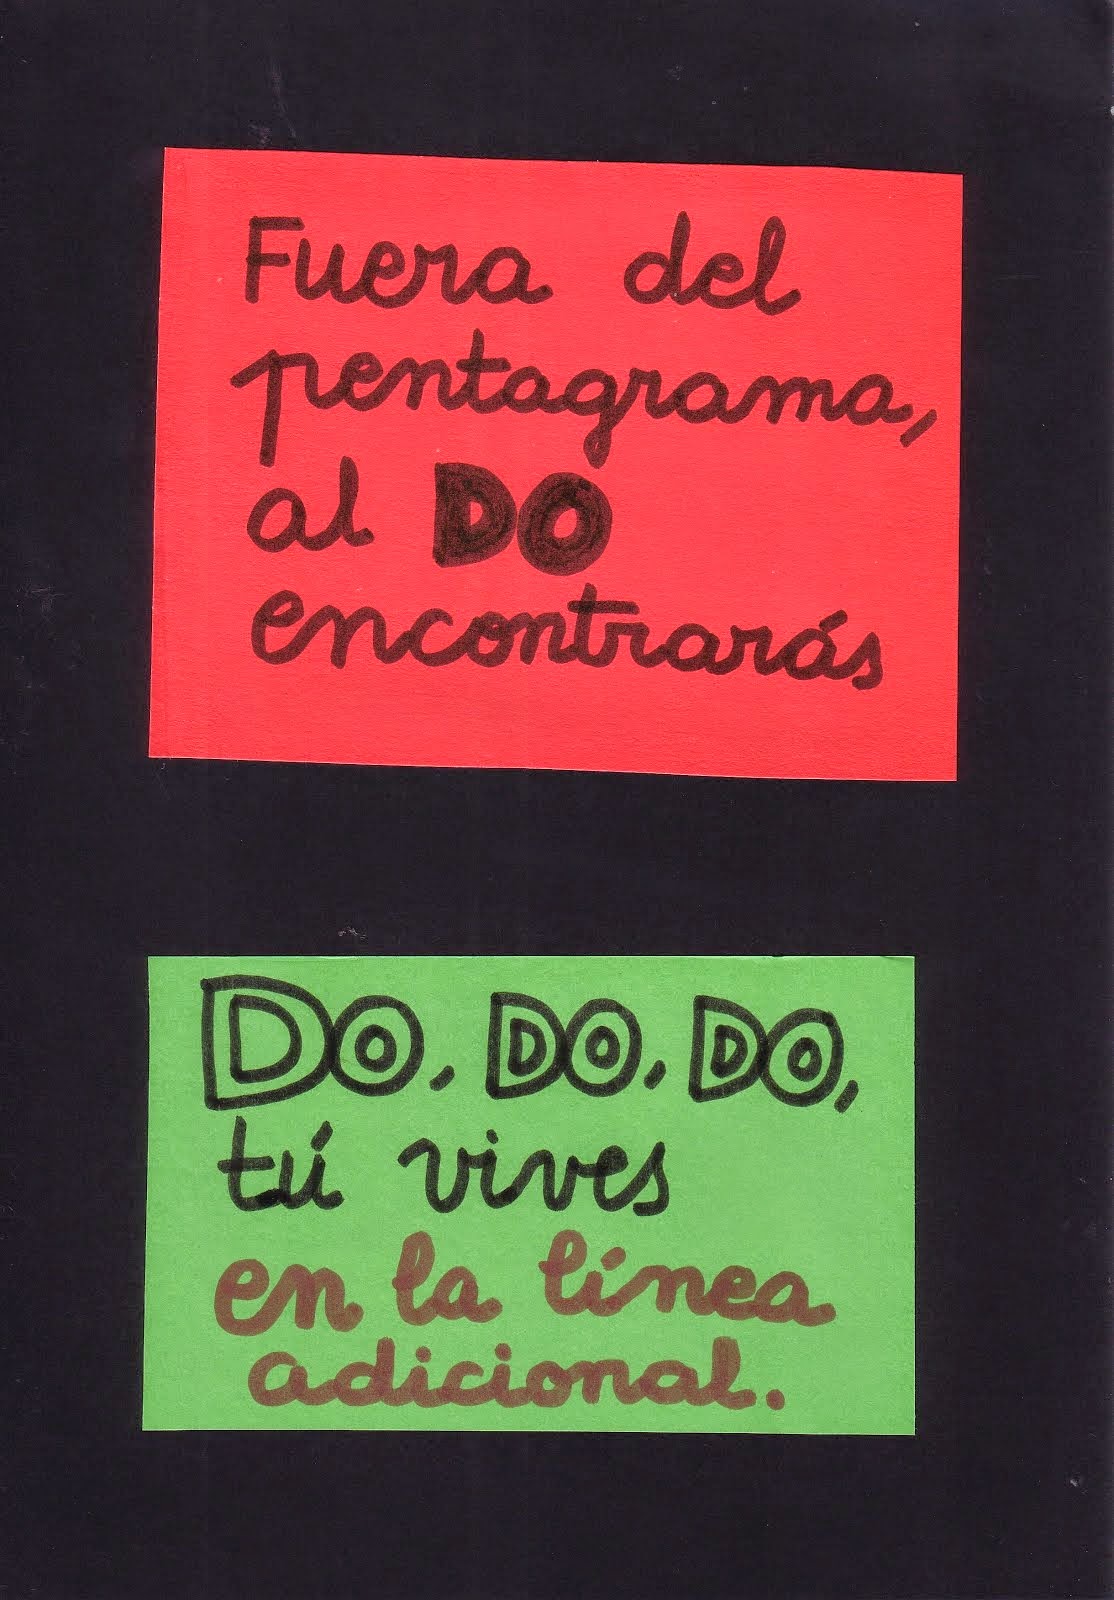 Fuera del
pentagrama,
al DO
encontrarás
DO, DO, DO,
tú vives
en la línea
adicional.